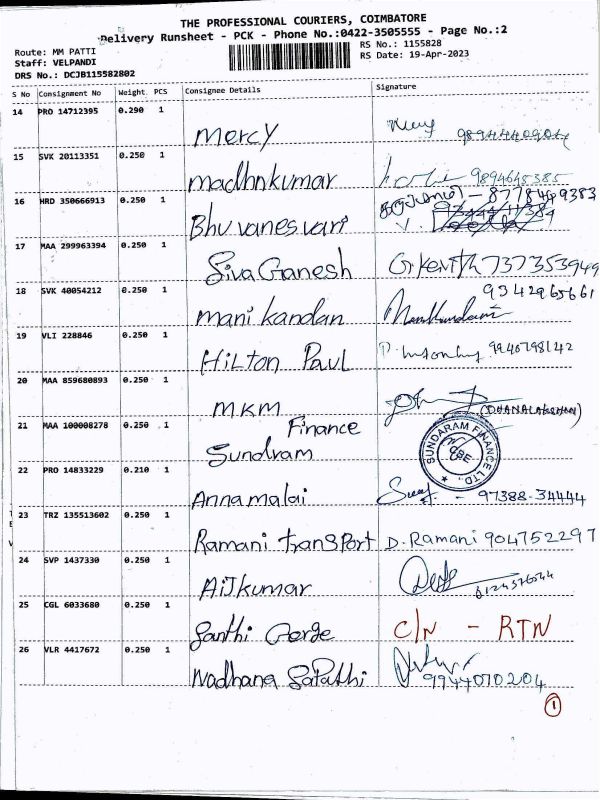 THE PROFESSIONAL COURIERS, COIMBATORE
Delivery Runsheet - PCK - Phone No.:0422-3505555 - Page No.:2
Route: MM PATTI
Staff: VELPANDI
DRS No.: DCJB115582802
RS No.: 1155828
RS Date: 19-Apr-2023
S No Consignment No Weight. PCS Consignee Details Signature
14 PRO 14712395 0.290 1 Mercy
15 SVK 20113351 0.250 1 madhnkumar 9894645385
16 HRD 350666913 0.250 1 Bhuvanesvari
17 MAA 299963394 0.250 1 Siva Ganesh 737353949
18 SVK 40054212 0.250 1 mani kandan 9342965661
19 VLI 228846 0.250 1 Hilton Paul 9940798142
20 MAA 859680893 0.250 1 MKM (DHANALAKSHMI)
21 MAA 100008278 0.250 1 Finance
Sundram
SUNDARAM FINANCE LTD.
CBE
22 PRO 14833229 0.210 1 Annamalai - 97388-34444
23 TRZ 135513602 0.250 1 Ramani transport D. Ramani 904752297
24 SVP 1437330 0.250 1 Aijkumar
25 CGL 6033680 0.250 1 Santhi George C/N - RTN
26 VLR 4417672 0.250 1 Wadhana Sapathi 9944070204
1